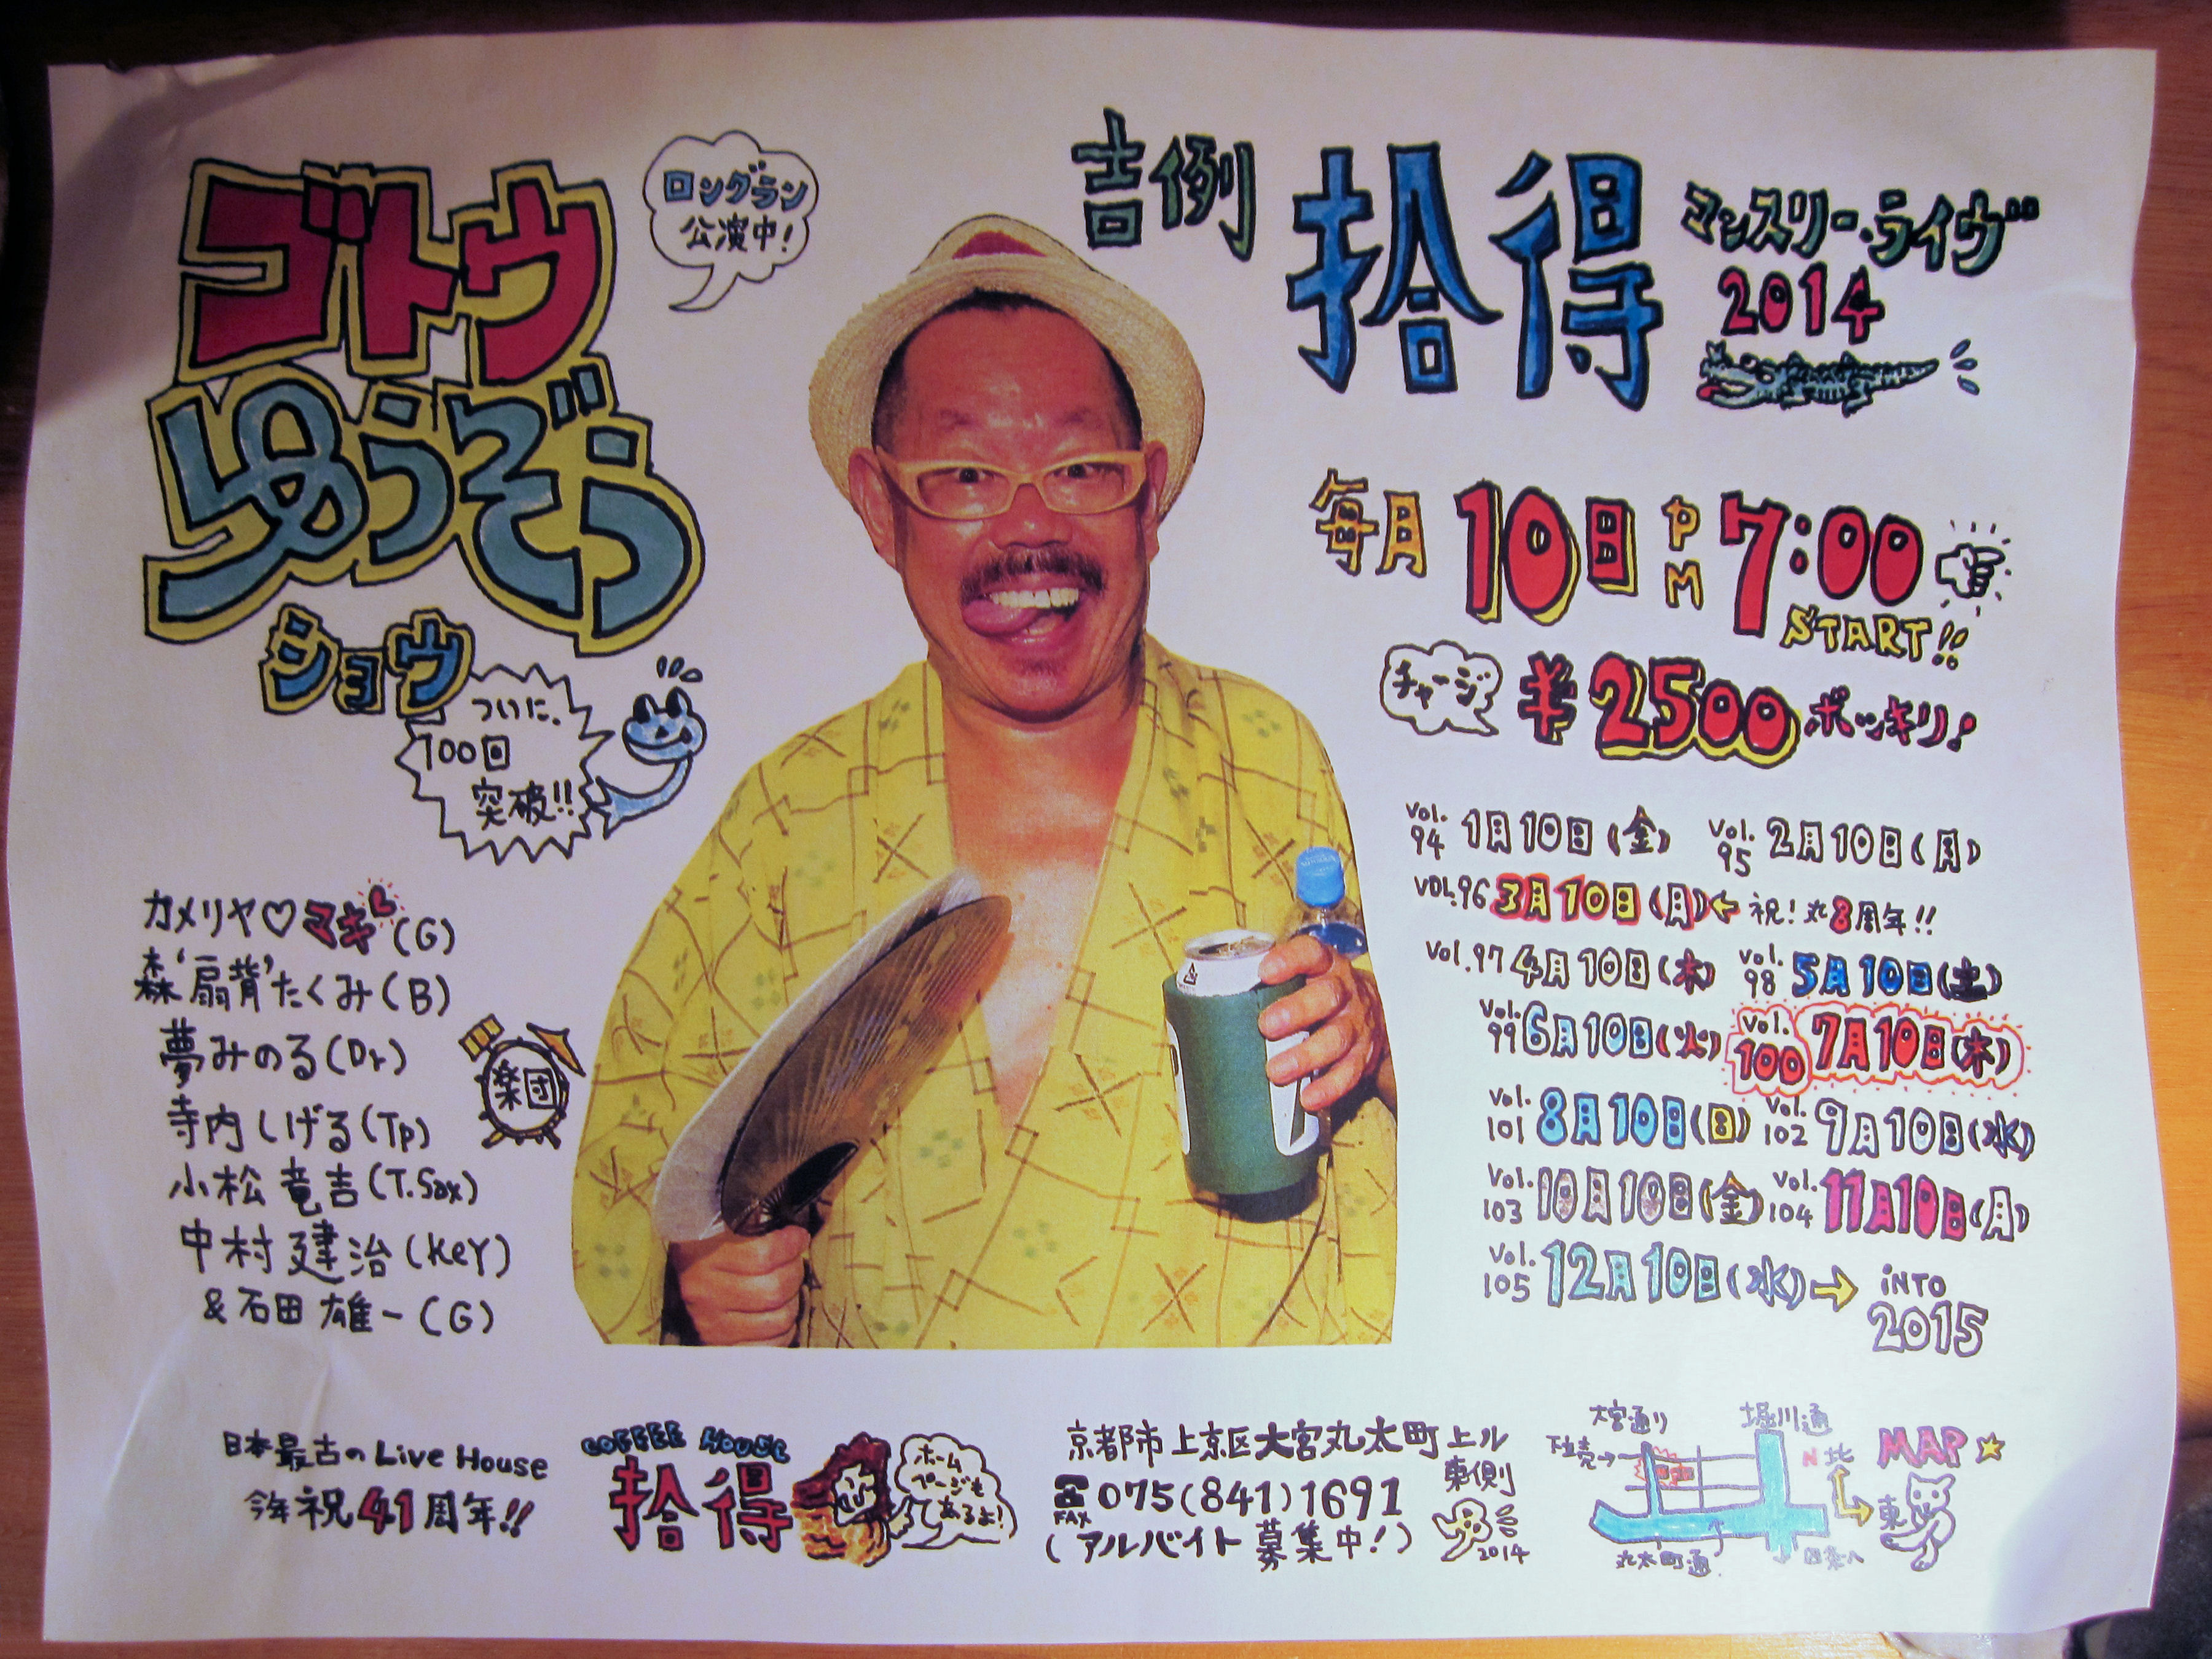 ゴトウ
ゆうぞう
ショウ
ロングラン
公演中!
ついに、
100回
突破!!
吉例
拾得
マンスリー・ライヴ
2014
毎月10日PM7:00
START!!
チャージ
¥2500ポッキリ!
Vol.94 1月10日(金) Vol.95 2月10日(月)
VOL.96 3月10日(月)← 祝!丸8周年!!
Vol.97 4月10日(木) Vol.98 5月10日(土)
Vol.99 6月10日(火) Vol.100 7月10日(木)
Vol.101 8月10日(日) Vol.102 9月10日(水)
Vol.103 10月10日(金) Vol.104 11月10日(月)
Vol.105 12月10日(水)→ iNTO
2015
カメリヤ♡マキ(G)
森'扇背'たくみ(B)
夢みのる(Dr)
寺内しげる(Tp)
小松竜吉(T.Sax)
中村建治(KeY)
&石田雄一(G)
楽団
日本最古のLive House
今年祝41周年!!
COFFEE HOUSE
拾得
ホーム
ページも
あるよ!
京都市上京区大宮丸太町上ル
東側
FAX 075(841)1691
(アルバイト募集中!)
2014
大宮通り
堀川通
下立売→
N 北
東
MAP
丸太町通
四条へ